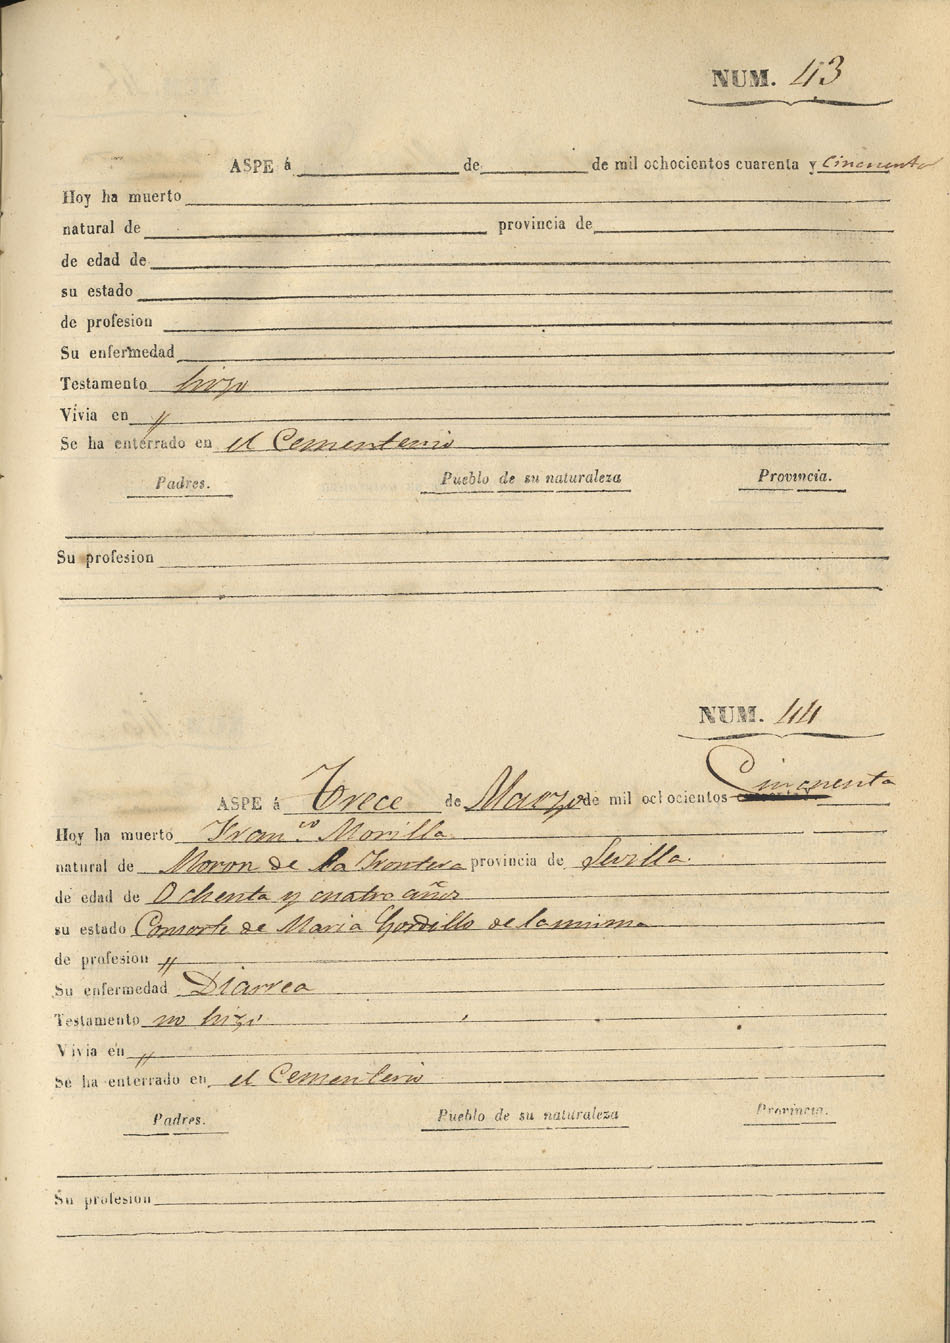 NUM. 43
ASPE á de de mil ochocientos cuarenta y Cincuenta
Hoy ha muerto
natural de provincia de
de edad de
su estado
de profesion
Su enfermedad
Testamento hizo
Vivia en "
Se ha enterrado en el Cementerio
Padres. Pueblo de su naturaleza Provincia.
Su profesion
NUM. 44
ASPE á Trece de Marzo de mil ochocientos Cincuenta
Hoy ha muerto Fran.co Morilla
natural de Moron de la Frontera provincia de Sevilla.
de edad de Ochenta y cuatro años
su estado Consorte de Maria Gordillo de la misma
de profesion "
Su enfermedad Diarrea
Testamento no hizo
Vivia en "
Se ha enterrado en el Cementerio
Padres. Pueblo de su naturaleza Provincia.
Su profesion